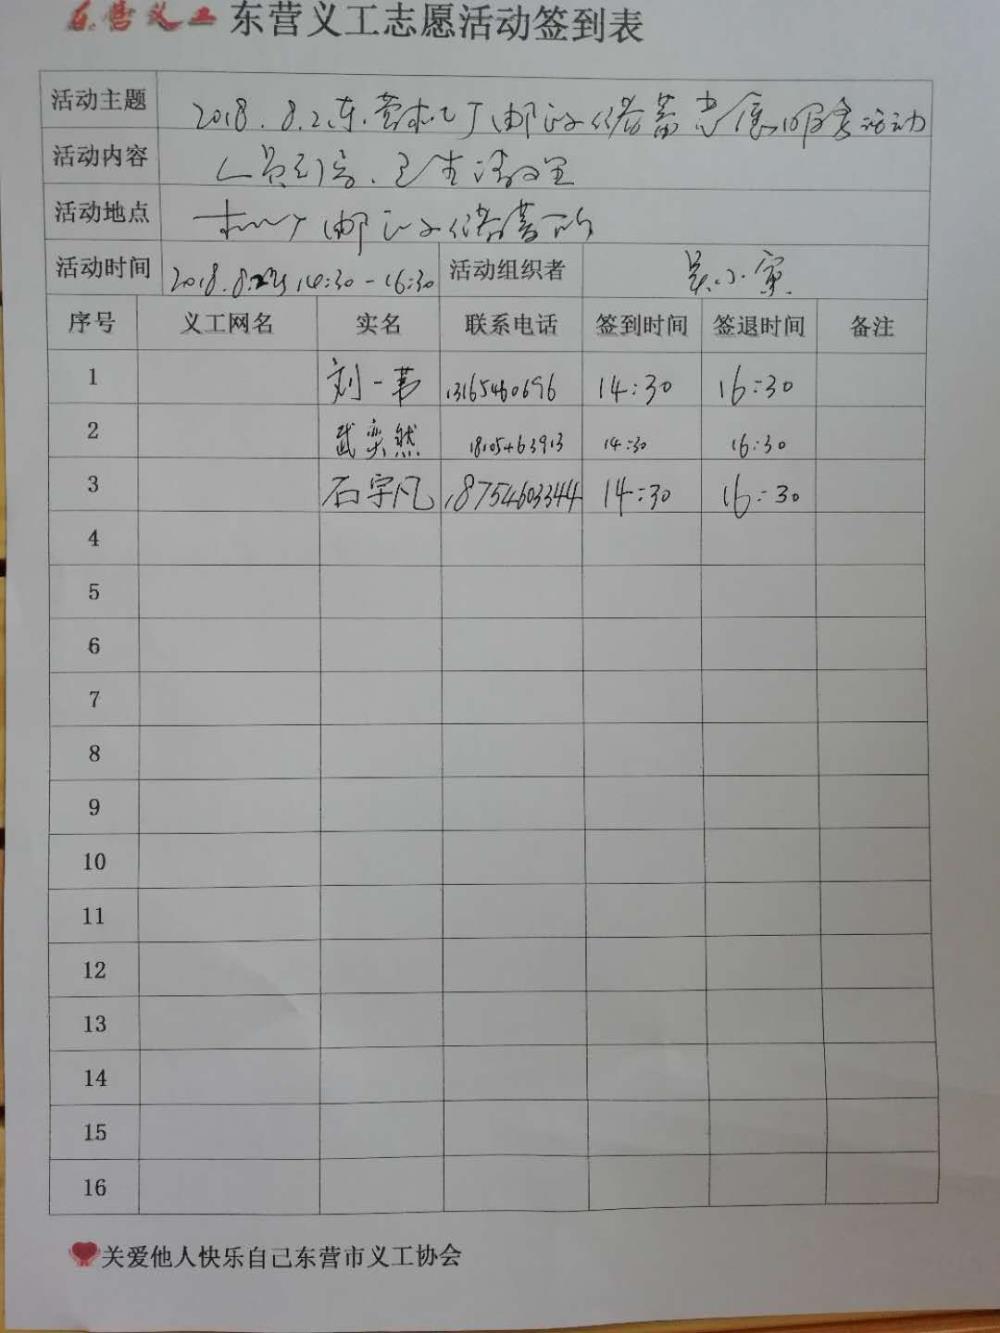 东营义工 东营义工志愿活动签到表
活动主题 2018.8.2东营机厂邮政储蓄志愿服务活动
活动内容 人员引导、卫生清理
活动地点 机厂邮政储蓄所
活动时间 14:30-16:30 活动组织者
序号 义工网名 实名 联系电话 签到时间 签退时间 备注
1 刘一苇 13165460696 14:30 16:30
2 武奕然 18105463913 14:30 16:30
3 石宇凡 18754603344 14:30 16:30
4
5
6
7
8
9
10
11
12
13
14
15
16
关爱他人快乐自己东营市义工协会